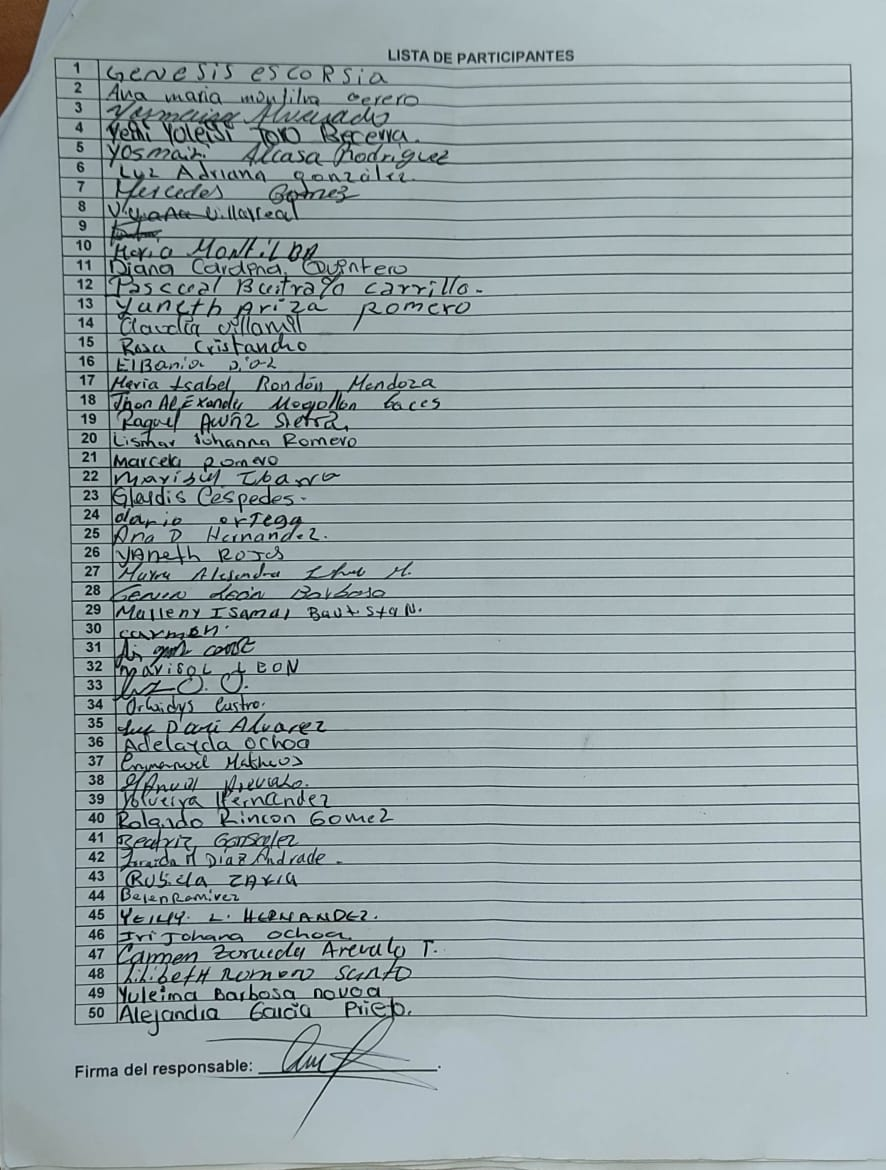 LISTA DE PARTICIPANTES
1 Genesis escoRsia
2 Ana maria montilva cerero
3 Yermeira Alvarado
4 Yeni Yoleisi Toro Becerra.
5 Yosmair Alcasa Rodriguez
6 Luz Adriana gonzalez
7 Mercedes Gomez
8 Viviana Villarreal
9
10 Maria Montilva
11 Diana Cardona Quintero
12 Pascual Buitrago carrillo.
13 Yaneth Ariza Romero
14 Claudia villamil
15 Rosa Cristancho
16 ElBania
17 Maria Isabel Rondón Mendoza
18 Jhon AlExander Mogollon Garces
19 Raquel Sierra
20 Lismar Johanna Romero
21 Marcela Romero
22 Marisul Ibarra
23 Glaidis Cespedes.
24 dario orTega
25 Ana D Hernandez.
26 YAneth Rojas
27 Mayra Alejandra M.
28 León Barbosa
29 Malleny Isamar Bautista N.
30 carmen.
31
32 marisol LEON
33 Luz O. O.
34 Orlaidys Castro.
35 Luz Dari Alvarez
36 Adelayda ochoa
37 Emmanuel Matheus
38 Arevalo.
39 Yolveiya Hernandez
40 Rolando Rincon Gomez
41 Beatriz Gonsalez
42 Zoraida M Diaz Andrade.
43 Rubiela ZAxia
44 Belen Ramirez
45 YEILLY. L. HERNANDEZ.
46 Iri Johana ochoa
47 Carmen Zoraida Arevalo T.
48 Lilibeth Romero Santo
49 Yuleima Barbosa novoa
50 Alejandra Garcia Prieto.
Firma del responsable: